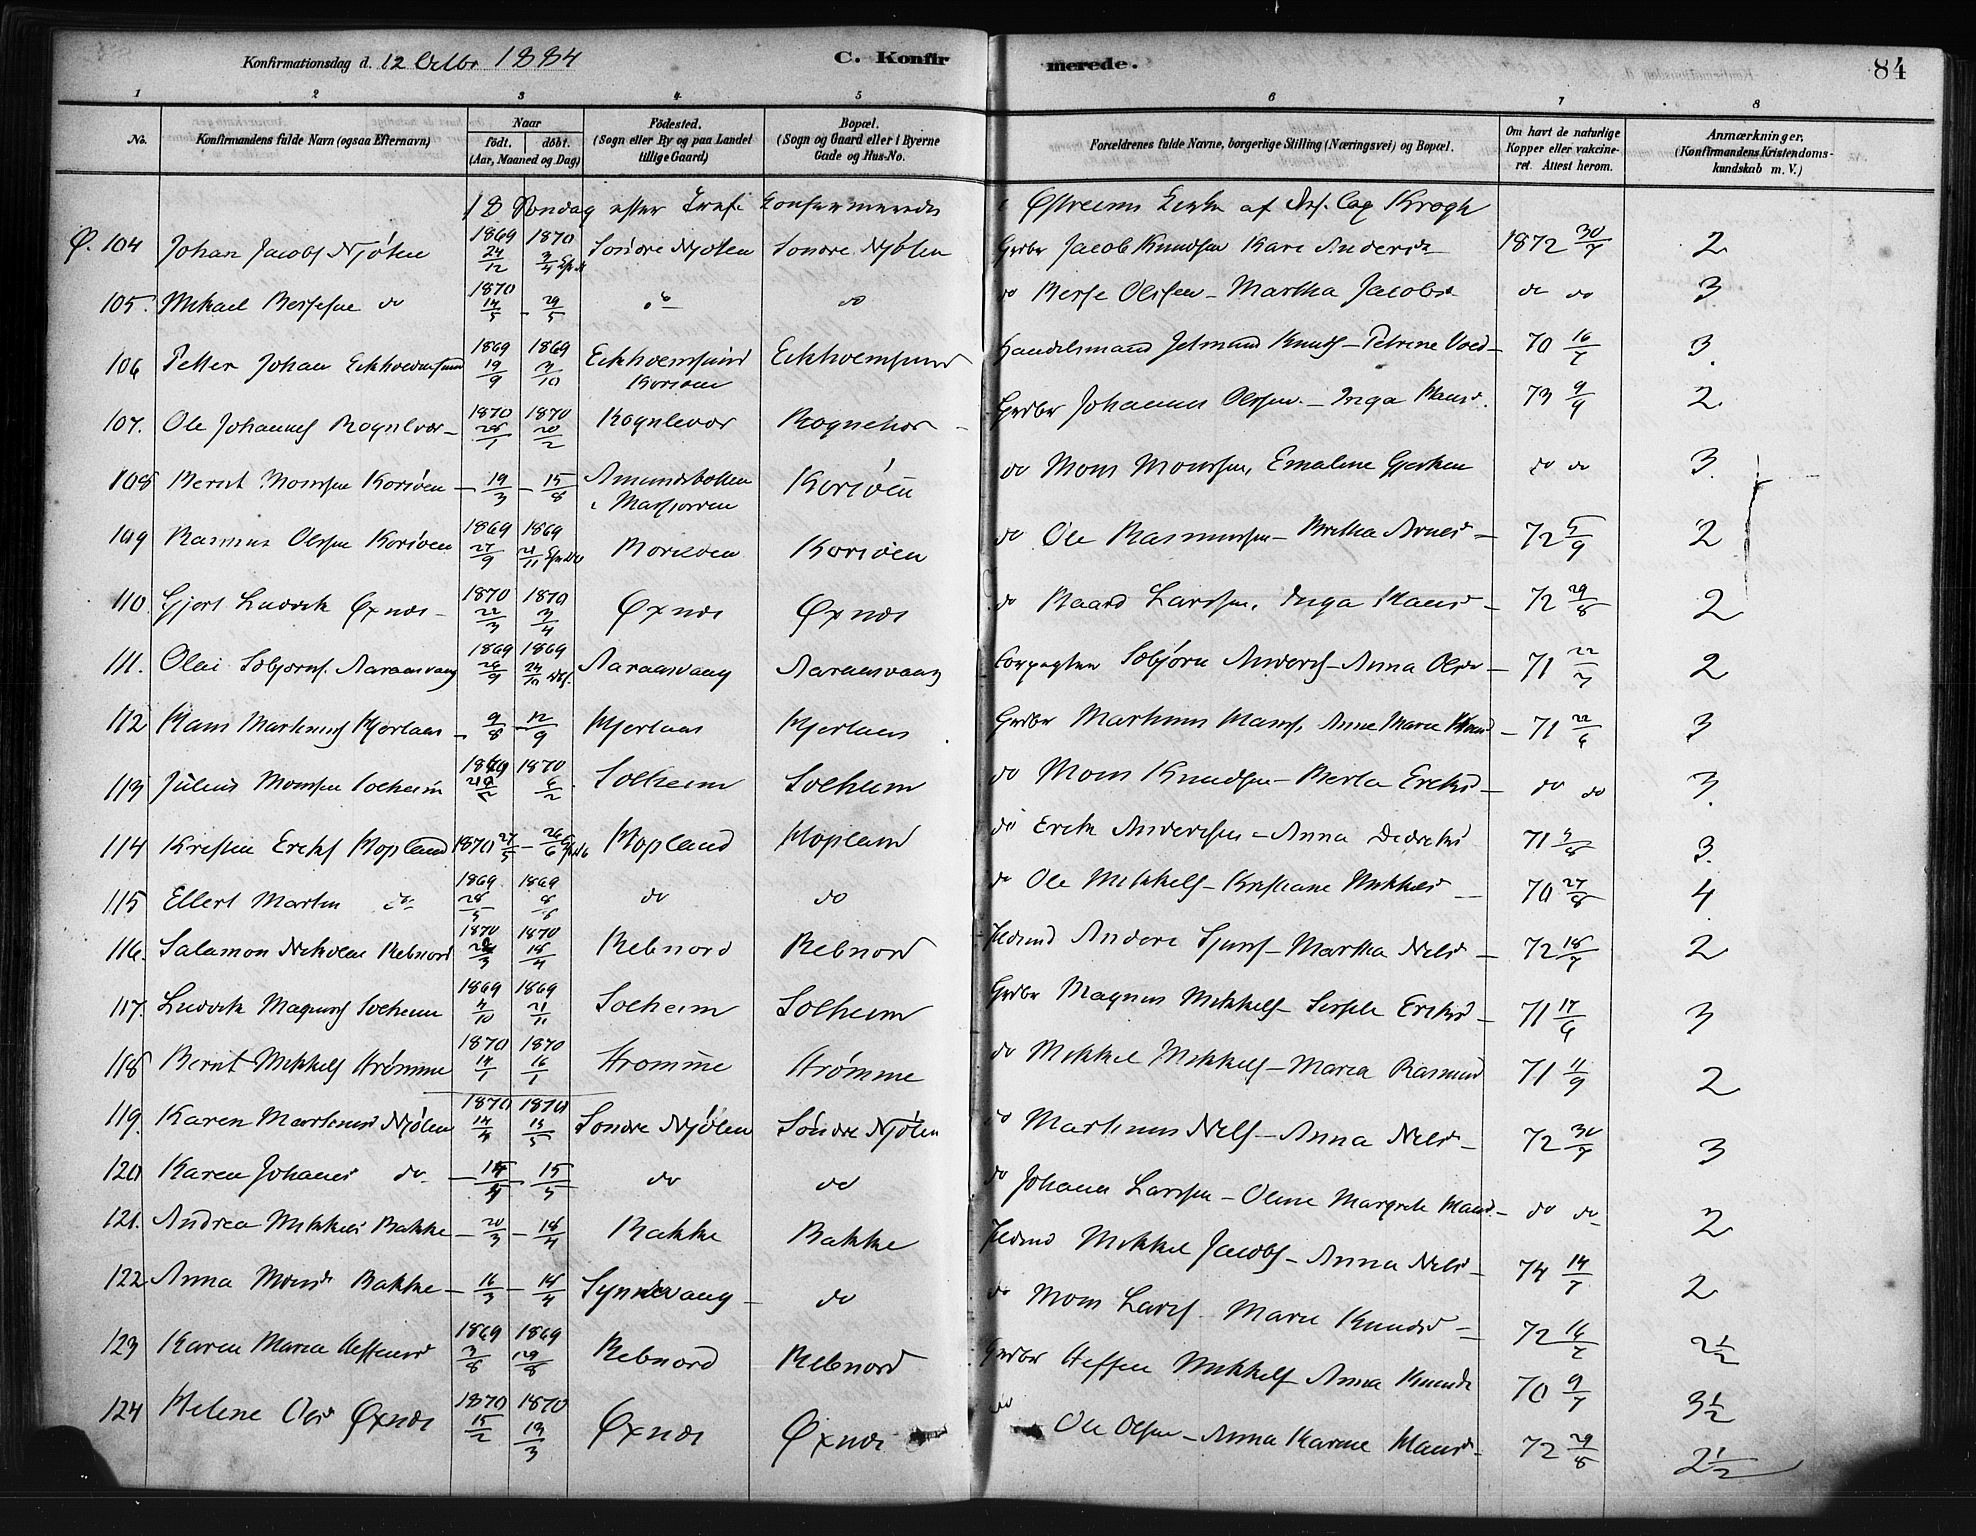 Konfirmationsdag d. 12 Octbr 1884
C. Konfirmerede.
84
1 2 3 4 5 6 7 8
No.
Konfirmandens fulde Navn (ogsaa Efternavn)
Naar
født. døbt.
(Aar, Maaned og Dag)
Fødested.
(Sogn eller By og paa Landet
tillige Gaard)
Bopæl.
(Sogn og Gaard eller i Byerne
Gade og Hus-No.
Forældrenes fulde Navne, borgerlige Stilling (Næringsvei) og Bopæl.
Om havt de naturlige
Kopper eller vakcine-
ret. Attest herom.
Anmærkninger.
(Konfirmandens Kristendoms-
kundskab m. V.)
18 Søndag efter Tref. Konfirmerede i Østreims Kirke af Res. Cap Krogh
104 Johan Jacobs Njøten 1869 24/12 1870 3/4 Søndre Njøten Søndre Njøten Grdbr Jacob Knudsen Kari Andersd 1872 30/7 2
105. Mikael Berseson do 1870 14/5 - 29/5 do do do Berse Olssen - Martha Jacobsd do do 3
106 Petter Johan 1869 19/9 1869 3/10 Handelsmand Knuds - Petrine 70 16/7 3
107. Ole Johannes Rognevær 1870 28/1 1870 20/2 Rognevær Rognevær Grdbr Johannes Olssen - Inga Hansd. 73 9/9 2
108 Bernt Monssen Korsøen - 19/3 - 15/8 Amundsbotten i Masfjorden Korsøen do Mons Monssen, Emaline Gjertsen do do 3
109 Rasmus Olssen Korsøen 1869 27/9 1869 21/11 Korsøen Korsøen do Ole Rasmussen - Bretha Arnesd - 72 5/9 2
110 Gjert Ludvik Øxnæs 1870 22/3 1870 3/4 Øxnæs Øxnæs do Baard Larssen, Inga Hansd - 72 29/8 2
111. Olai Sebjørns. Aaraasvaag 1869 26/9 1869 24/10 Aaraasvaag Aaraasvaag Sebjørn Anders - Anna Olsd - 71 22/7 2
112 Hans Martinus Hjertaas - 9/8 - 12/9 Hjertaas Hjertaas Grdbr Martinus Hanss, Anne Marie - 71 22/6 3
113 Julius Monssen Solheim 1869 1870 6/2 Solheim Solheim do Mons Knudsen - Berta Eriksd - do do 3.
114 Kristen Eriks Hopland 1870 27/5 - 26/6 Hopland Hopland do Erik Anderssen - Anna Dedriksd 71 3/8 3.
115 Ellert Martin do 1869 28/5 1869 8/8 do do do Ole Mikkels - Kristiane Mikkelsd 70 27/8 4
116. Salamon Nikolai Rebnord 1870 1870 18/4 Rebnord Rebnord Anders - Martha Nelsd - 72 18/7 2
117. Ludvik Magnus Solheim 1869 4/10 1869 21/11 Solheim Solheim Grdbr Magnus Mikkels - Eriksd - 71 17/6 3
118 Bernt Mikkels Strømme 1870 14/1 1870 16/1 Strømme Strømme do Mikkel Mikkels - Maria Rasmusd 71 11/9 2
119. Karen Martinusd Njøten 1870 14/4 1870 15/5 Søndre Njøten Søndre Njøten do Martinus Nels - Anna Nelsd - 72 30/7 3
120 Karen Johannesd do - 14/4 15/5 do do do Johannes Larssen - Oline Margrete Hansd - do do 2
121. Andrea Mikkelsd Bakke - 20/3 - 18/4 Bakke Bakke Mikkel Jacobs - Anna Nelsd - 74 14/7 2
122 Anna Monsd Bakke - 16/3 - 18/4 Synnevaag - do do Mons Lars - Marie Knudsd - 72 16/7 2½
123 Karen Maria Steffensd 1869 3/8 1869 29/8 Rebnord Rebnord Grdbr Steffen Mikkels Anna Knudsd 70 9/7 3½
124 Helene Olsd Øxnæs 1870 15/2 1870 13/3 Øxnæs Øxnæs do Ole Olsen - Anna Karine Hansd - 72 29/8 2½